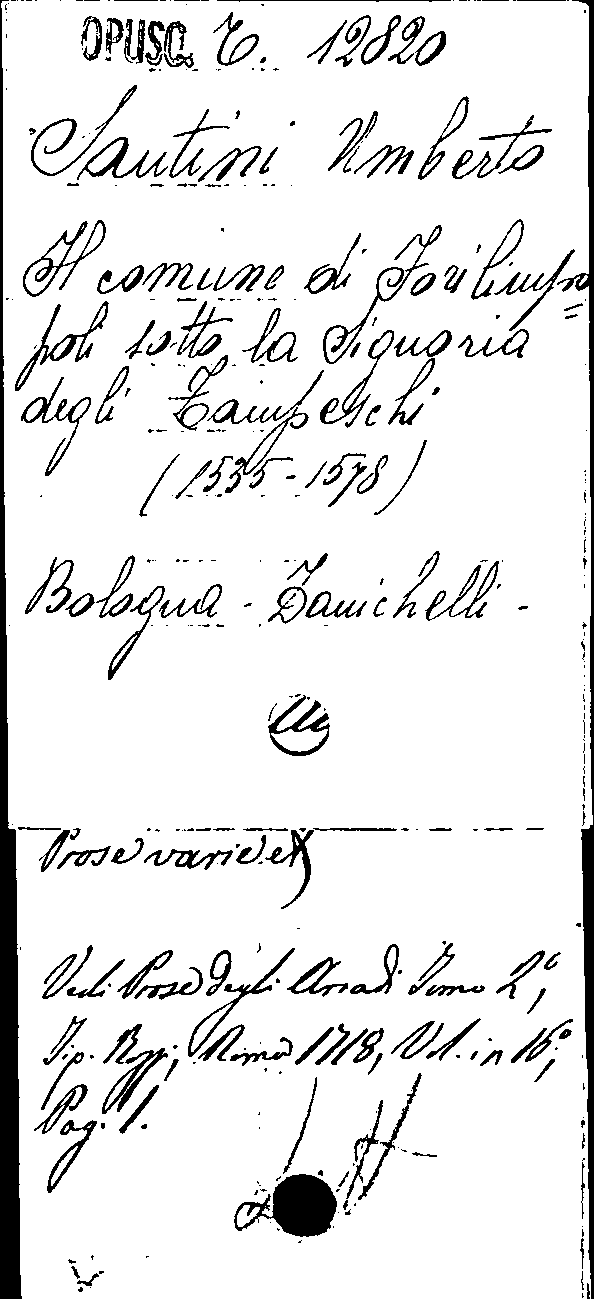 OPUSC. T. 12820
Santini Umberto
Il comune di Forlimpo=
poli sotto la Signoria
degli Zampeschi
(1535-1578)
Bologna - Zanichelli -
Prose varie
Vedi Prose degli Arcadi Tomo 2°,
Tip. Roma 1718, Vol. in 16°,
Pag. 1.